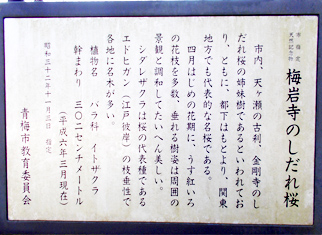 市指定
天然記念物
梅岩寺のしだれ桜
市内、天ヶ瀬の古刹、金剛寺のし
だれ桜の姉妹樹であるといわれてお
り、ともに、都下はもとより、関東
地方でも代表的な名桜である。
四月はじめの花期に、うす紅いろ
の花枝を多数、垂れる樹姿は周囲の
景観と調和してたいへん美しい。
シダレザクラは桜の代表種である
エドヒガン（江戸彼岸）の枝垂性で
各地に名木が多い。
植物名 バラ科 イトザクラ
幹まわり 三〇二センチメートル
（平成六年三月現在）
昭和三十二年十一月三日 指定
青梅市教育委員会